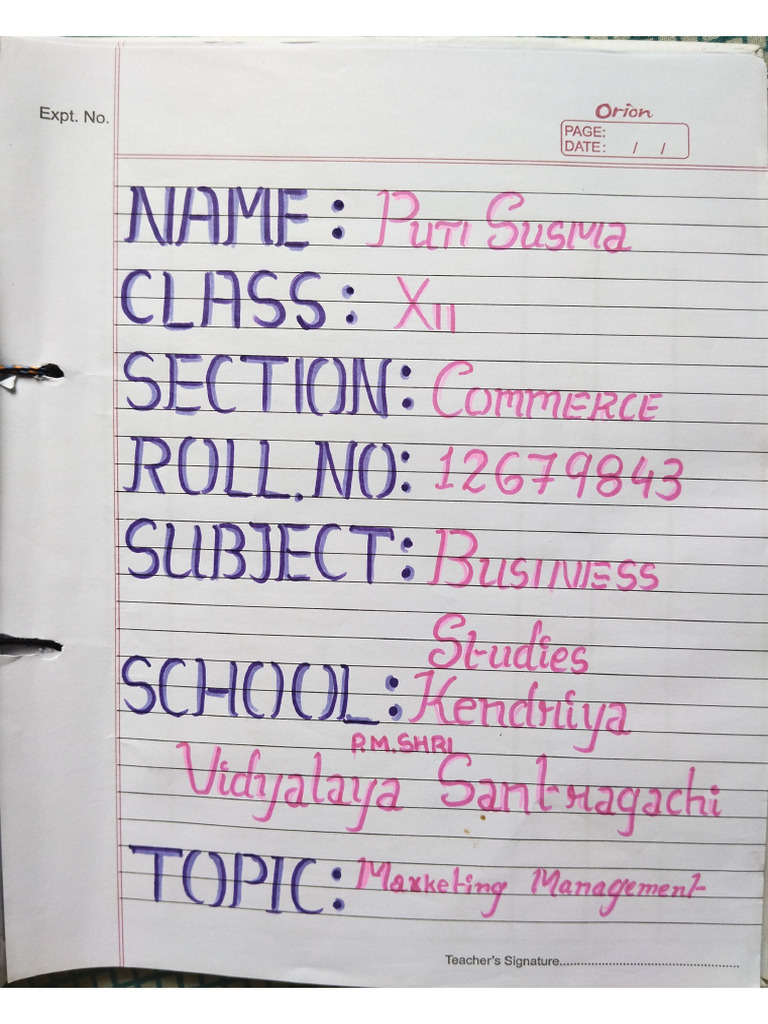 Expt. No.
Orion
PAGE:
DATE: / /
NAME: PUTI SUSMA
CLASS: XII
SECTION: COMMERCE
ROLL.NO: 12679843
SUBJECT: BUSINESS
Studies
SCHOOL: Kendriya
P.M.SHRI
Vidyalaya Santragachi
TOPIC: Marketing Management
Teacher's Signature